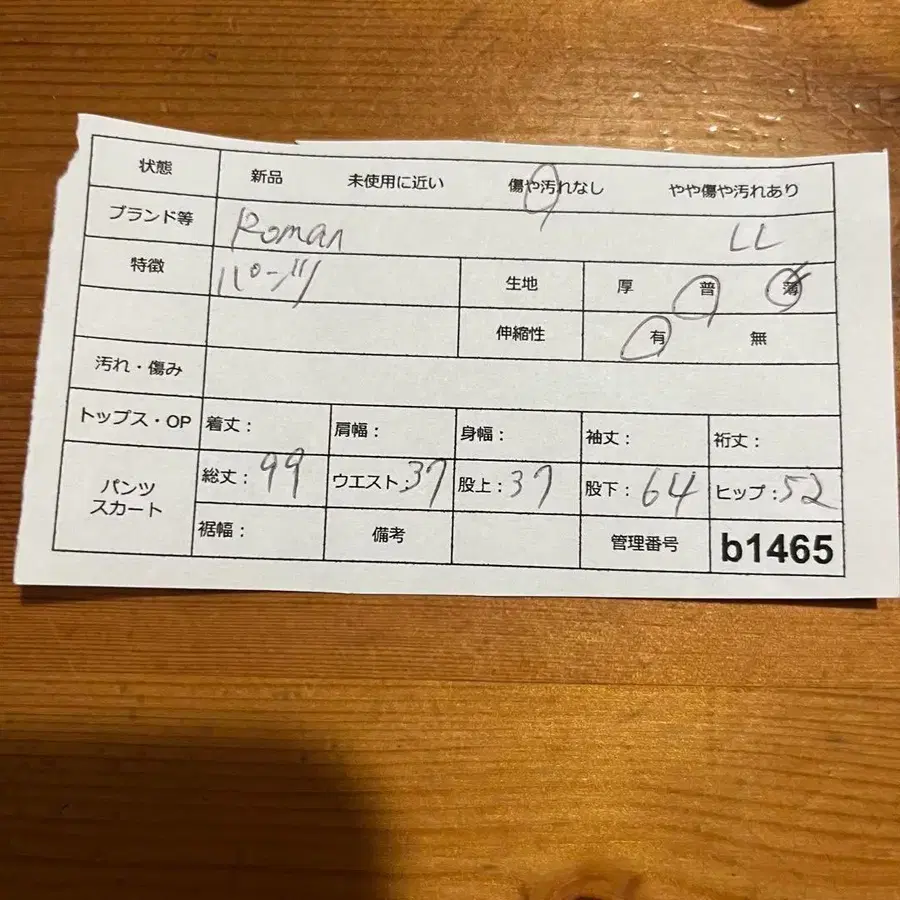 状態 新品 未使用に近い 傷や汚れなし やや傷や汚れあり
ブランド等 Roman LL
特徴 パンツ 生地 厚 普 薄
伸縮性 有 無
汚れ・傷み
トップス・OP 着丈： 肩幅： 身幅： 袖丈： 裄丈：
パンツ
スカート
総丈：99 ウエスト：37 股上：37 股下：64 ヒップ：52
裾幅： 備考 管理番号 b1465